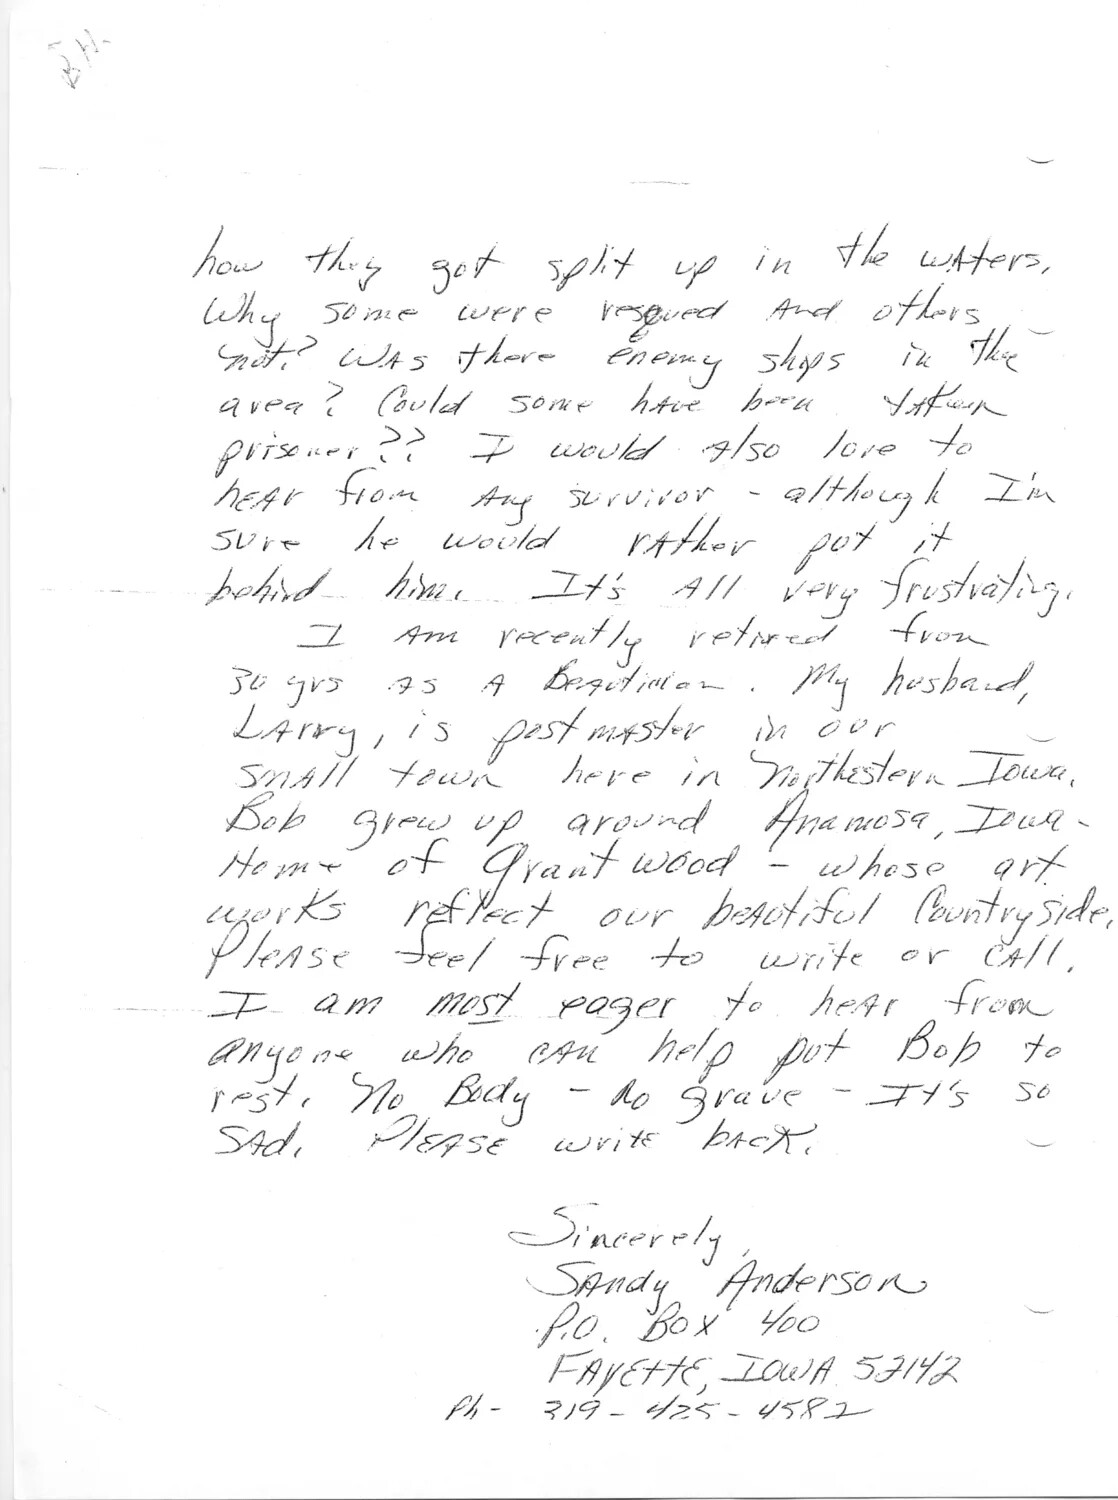 how they got split up in the waters.
Why some were resqued and others
not? Was there enemy ships in the
area? Could some have been taken
prisoner?? I would also love to
hear from any survivor - although I'm
sure he would rather put it
behind him. It's all very frustrating.
I am recently retired from
30 yrs as a Beautician. My husband,
Larry, is postmaster in our
small town here in Northestern Iowa.
Bob grew up around Anamosa, Iowa -
Home of Grant Wood - whose art
works reflect our beautiful Countryside.
Please feel free to write or call.
I am most eager to hear from
anyone who can help put Bob to
rest. No Body - No grave - It's so
sad. Please write back.
Sincerely,
Sandy Anderson
P.O. Box 400
Fayette, Iowa 52142
Ph - 319-425-4582